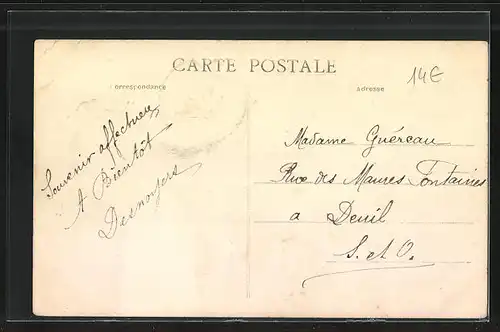 CARTE POSTALE
14€
Correspondance
adresse
Souvenir affectueux
A Bientôt
Desnoyers
Madame Guéreau
Rue des Maures Fontaines
a Deuil
S. et O.